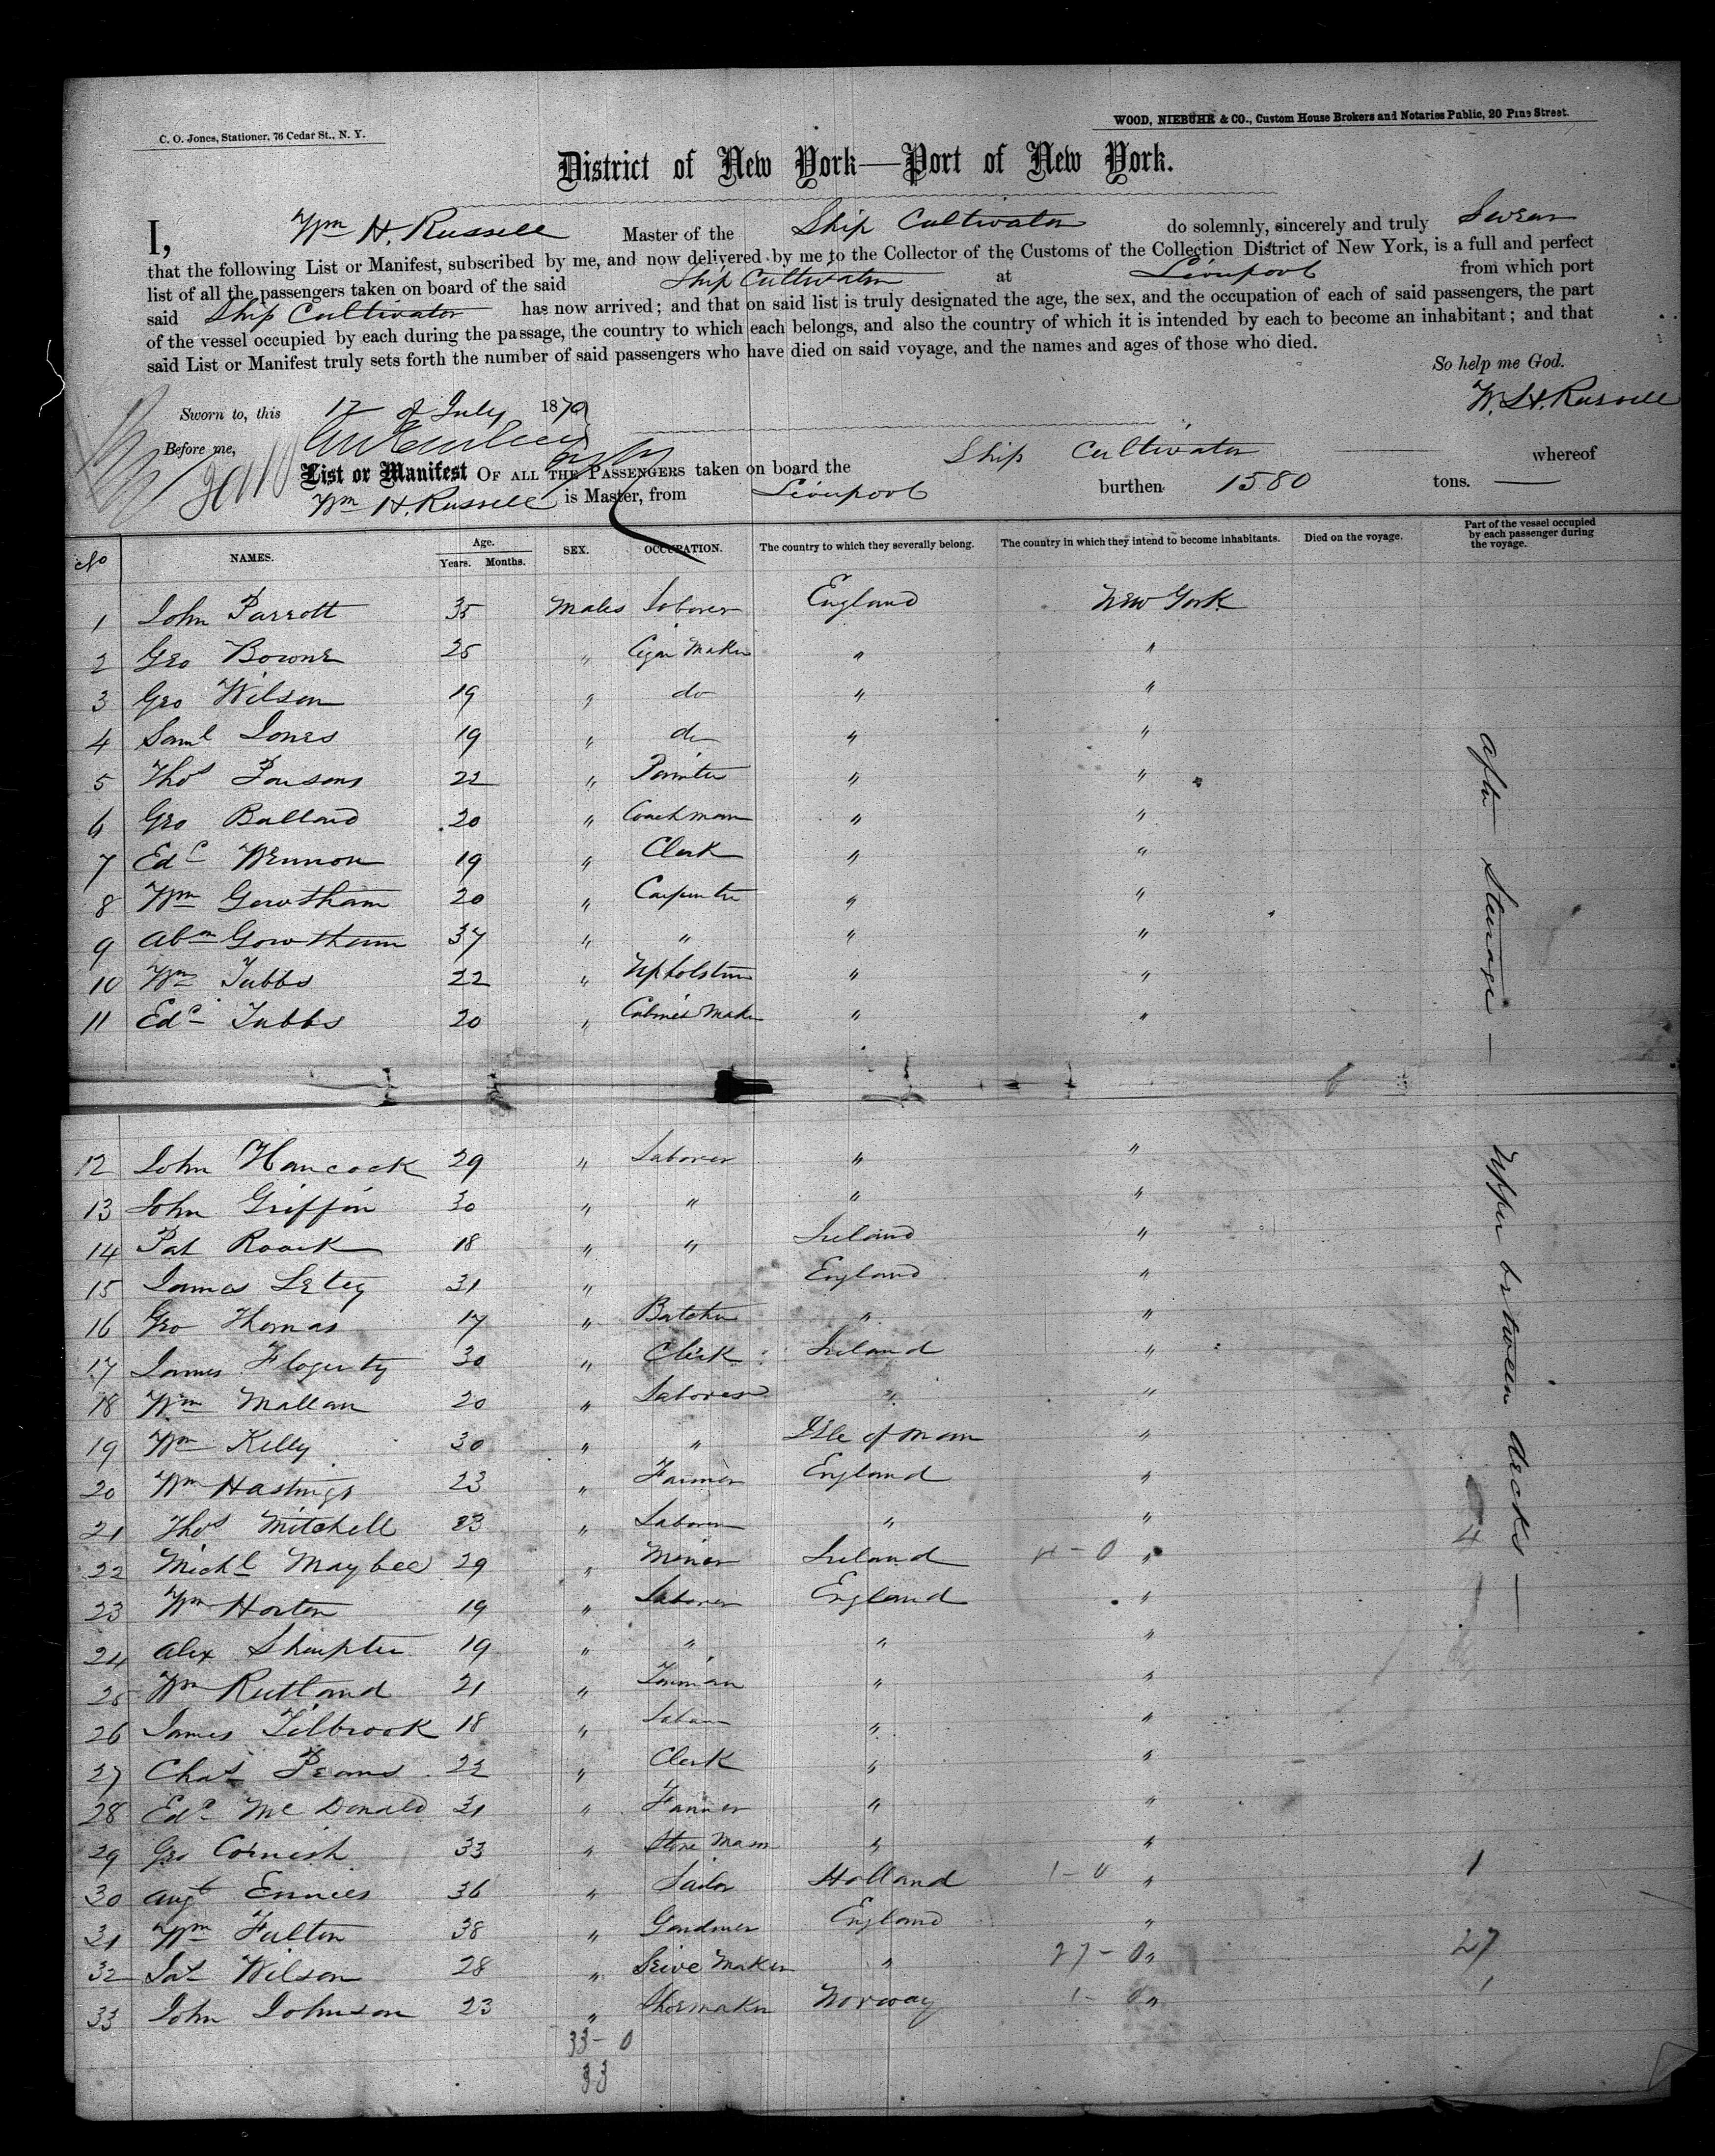 C. O. Jones, Stationer, 76 Cedar St., N. Y.
WOOD, NIEBUHR & CO., Custom House Brokers and Notaries Public, 20 Pine Street.
District of New York—Port of New York.
I, Wm H. Russell Master of the Ship Cultivator do solemnly, sincerely and truly Swear
that the following List or Manifest, subscribed by me, and now delivered by me to the Collector of the Customs of the Collection District of New York, is a full and perfect
list of all the passengers taken on board of the said Ship Cultivator at Liverpool from which port
said Ship Cultivator has now arrived; and that on said list is truly designated the age, the sex, and the occupation of each of said passengers, the part
of the vessel occupied by each during the passage, the country to which each belongs, and also the country of which it is intended by each to become an inhabitant; and that
said List or Manifest truly sets forth the number of said passengers who have died on said voyage, and the names and ages of those who died.
So help me God.
Sworn to, this 12 of July 1870
W. H. Russell
Before me,
List or Manifest OF ALL THE PASSENGERS taken on board the Ship Cultivator whereof
Wm H. Russell is Master, from Liverpool burthen 1580 tons.
No NAMES. Age. Years. Months. SEX. OCCUPATION. The country to which they severally belong. The country in which they intend to become inhabitants. Died on the voyage. Part of the vessel occupied by each passenger during the voyage.
1 John Parrott 35 Males Laborer England New York
2 Geo Bowne 25 " Cigar Maker " "
3 Geo Wilson 19 " do " "
4 Saml Jones 19 " do " "
5 Thos Parsons 22 " Painter " "
6 Geo Ballard 20 " Coachman " "
7 Edd Wennon 19 " Clerk " "
8 Wm Gowtham 20 " Carpenter " "
9 Abm Gowtham 37 " " " "
10 Wm Tubbs 22 " Upholsterer " "
11 Edd Tubbs 20 " Cabinet Maker " "
After Steerage —
12 John Hancock 29 " Laborer " "
13 John Griffin 30 " " " "
14 Pat Roark 18 " " Ireland "
15 James Letey 31 " England "
16 Geo Thomas 17 " Butcher " "
17 James Flogerty 30 " Clerk Ireland "
18 Wm Mallan 20 " Laborer " "
19 Wm Kelly 30 " " Isle of Man "
20 Wm Hastings 23 " Farmer England "
21 Thos Mitchell 23 " Laborer " "
22 Michl Maybee 29 " Miner Ireland 4-0 " 4
23 Wm Horton 19 " Laborer England "
24 Alex 19 " " " "
25 Wm Rutland 21 " " "
26 James Tilbrook 18 " Laborer " "
27 Chas 22 " Clerk " "
28 Edd McDonald 31 " Farmer " "
29 Geo Cornish 33 " Stone Mason " "
30 Augt Ennees 36 " Sailor Holland 1-0 " 1
31 Wm Fulton 38 " Gardener England "
32 Jas Wilson 28 " Seive Maker " 27-0 " 27
33 John Johnson 23 " Shoemaker Norway 1-0 " 1
Upper between decks —
33-0
33